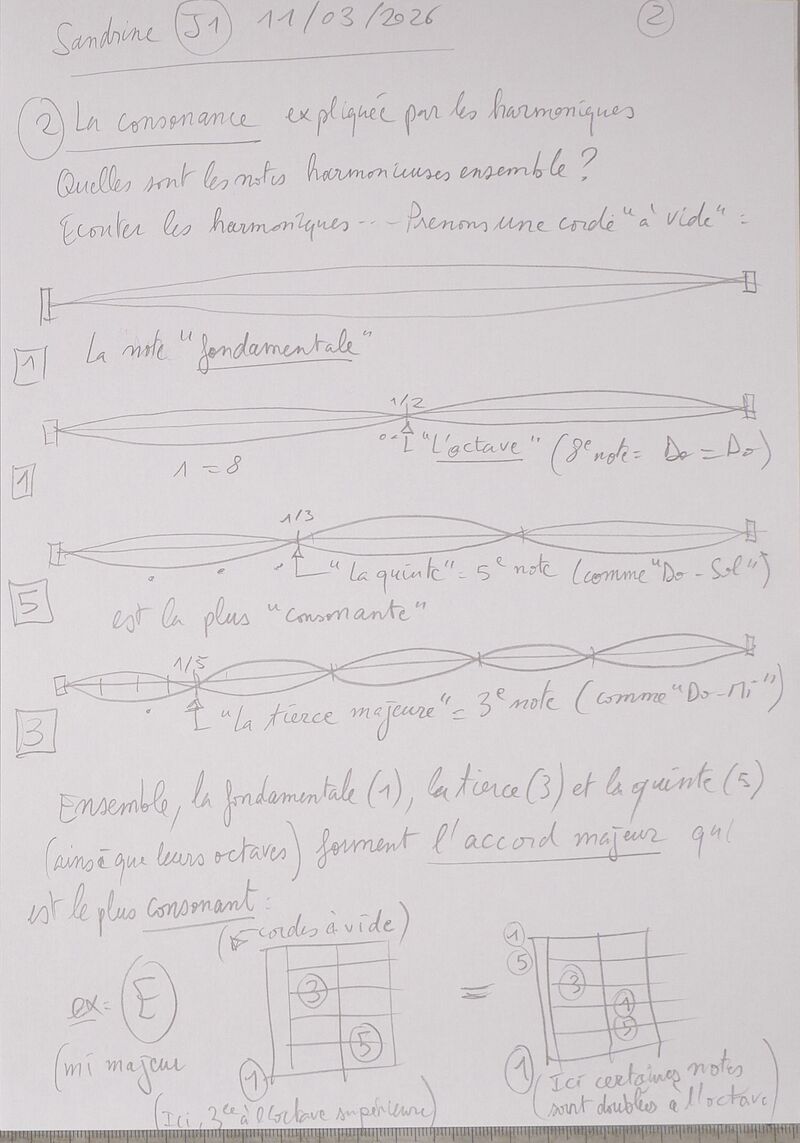 Sandrine J1 11/03/2026 2
2 La consonance expliquée par les harmoniques
Quelles sont les notes harmonieuses ensemble ?
Ecouter les harmoniques... Prenons une corde "à vide" =
1 La note "fondamentale"
1/2
"L'octave" (8e note = Do = Do)
1 = 8
1
1/3
"La quinte" = 5e note (comme "Do - Sol")
5 est la plus "consonante"
1/5
"La tierce majeure" = 3e note (comme "Do - Mi")
3
Ensemble, la fondamentale (1), la tierce (3) et la quinte (5)
(ainsi que leurs octaves) forment l'accord majeur qui
est le plus consonant :
(cordes à vide)
ex = E
(mi majeur
3
5
1
(Ici, 3ce à l'octave supérieure)
=
1
5
3
1
5
1
(Ici certaines notes
sont doublées à l'octave)